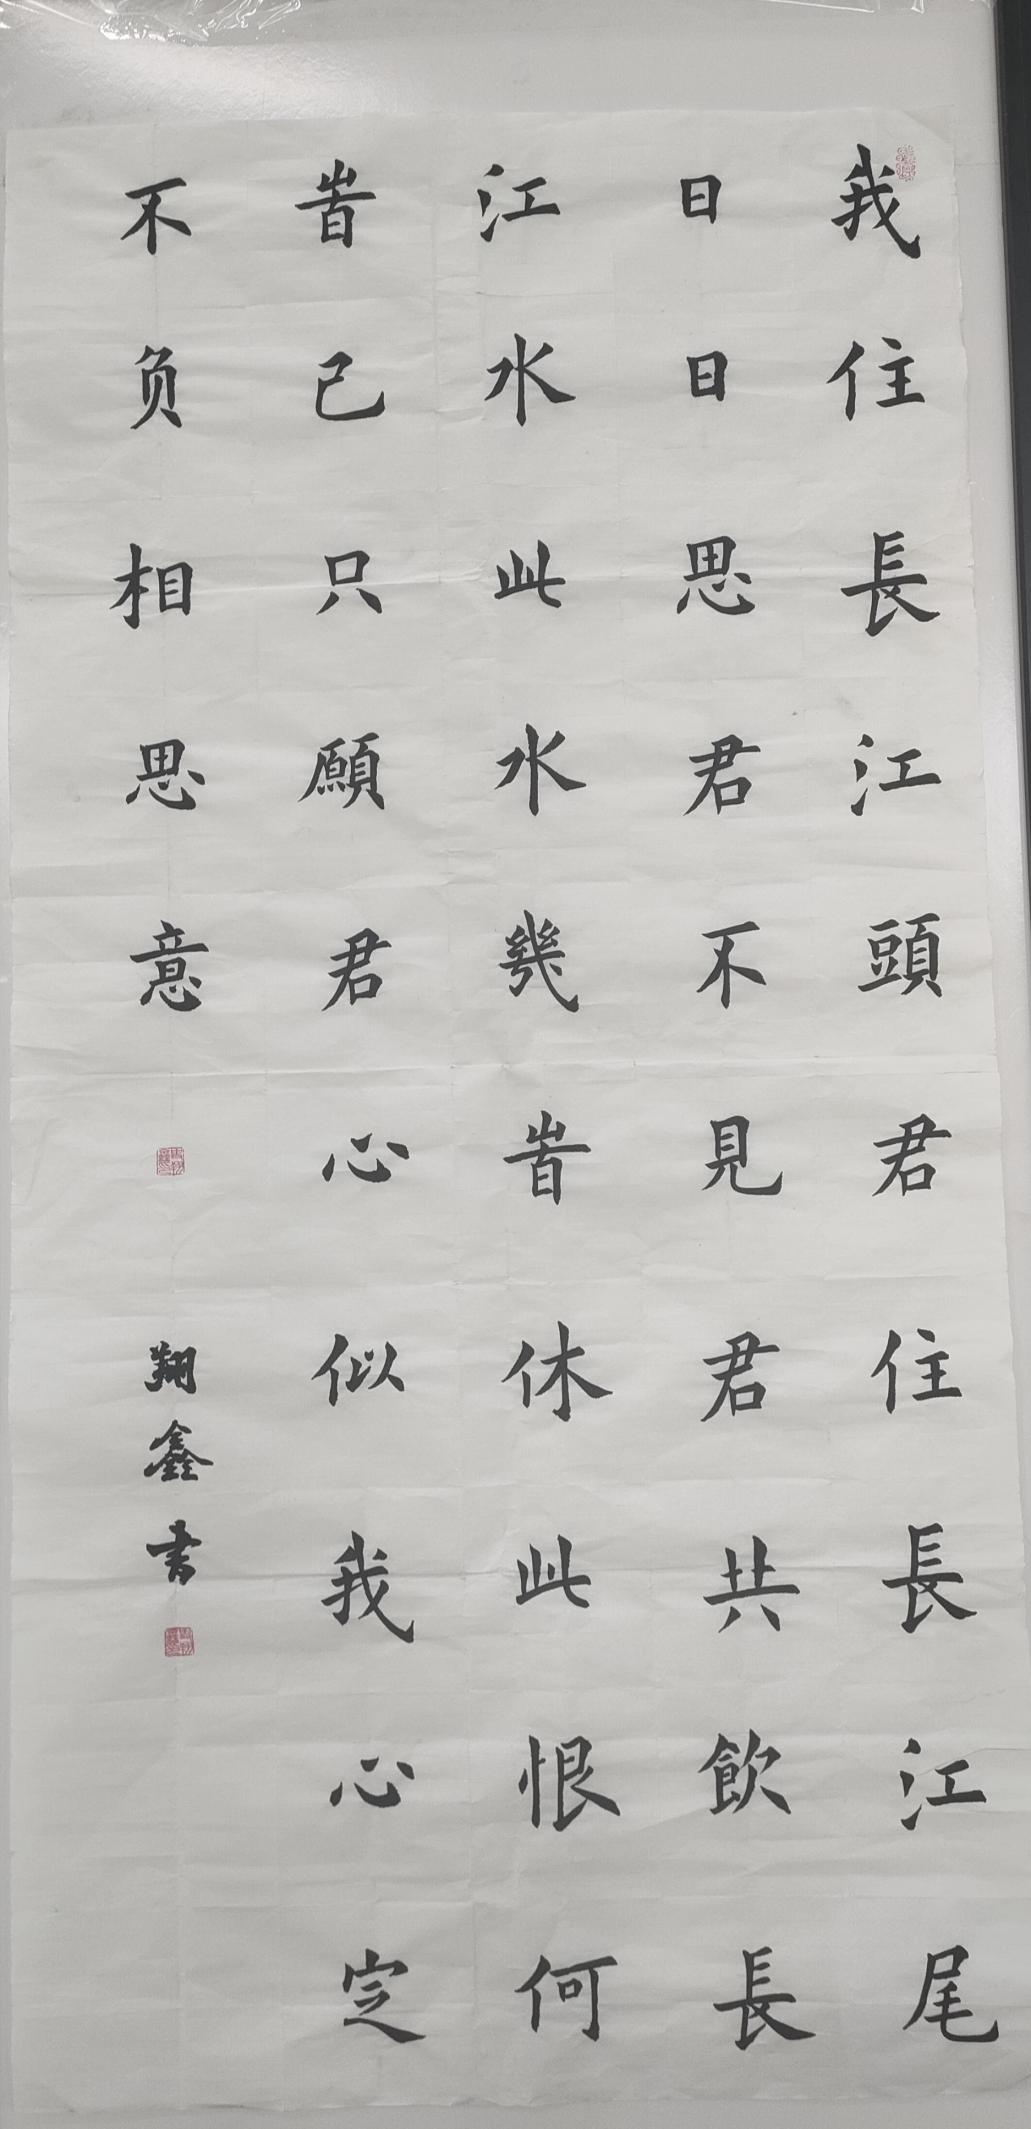 我住長江頭君住長江尾
日日思君不見君共飲長
江水此水幾旹休此恨何
旹已只願君心似我心定
不负相思意
翔鑫書